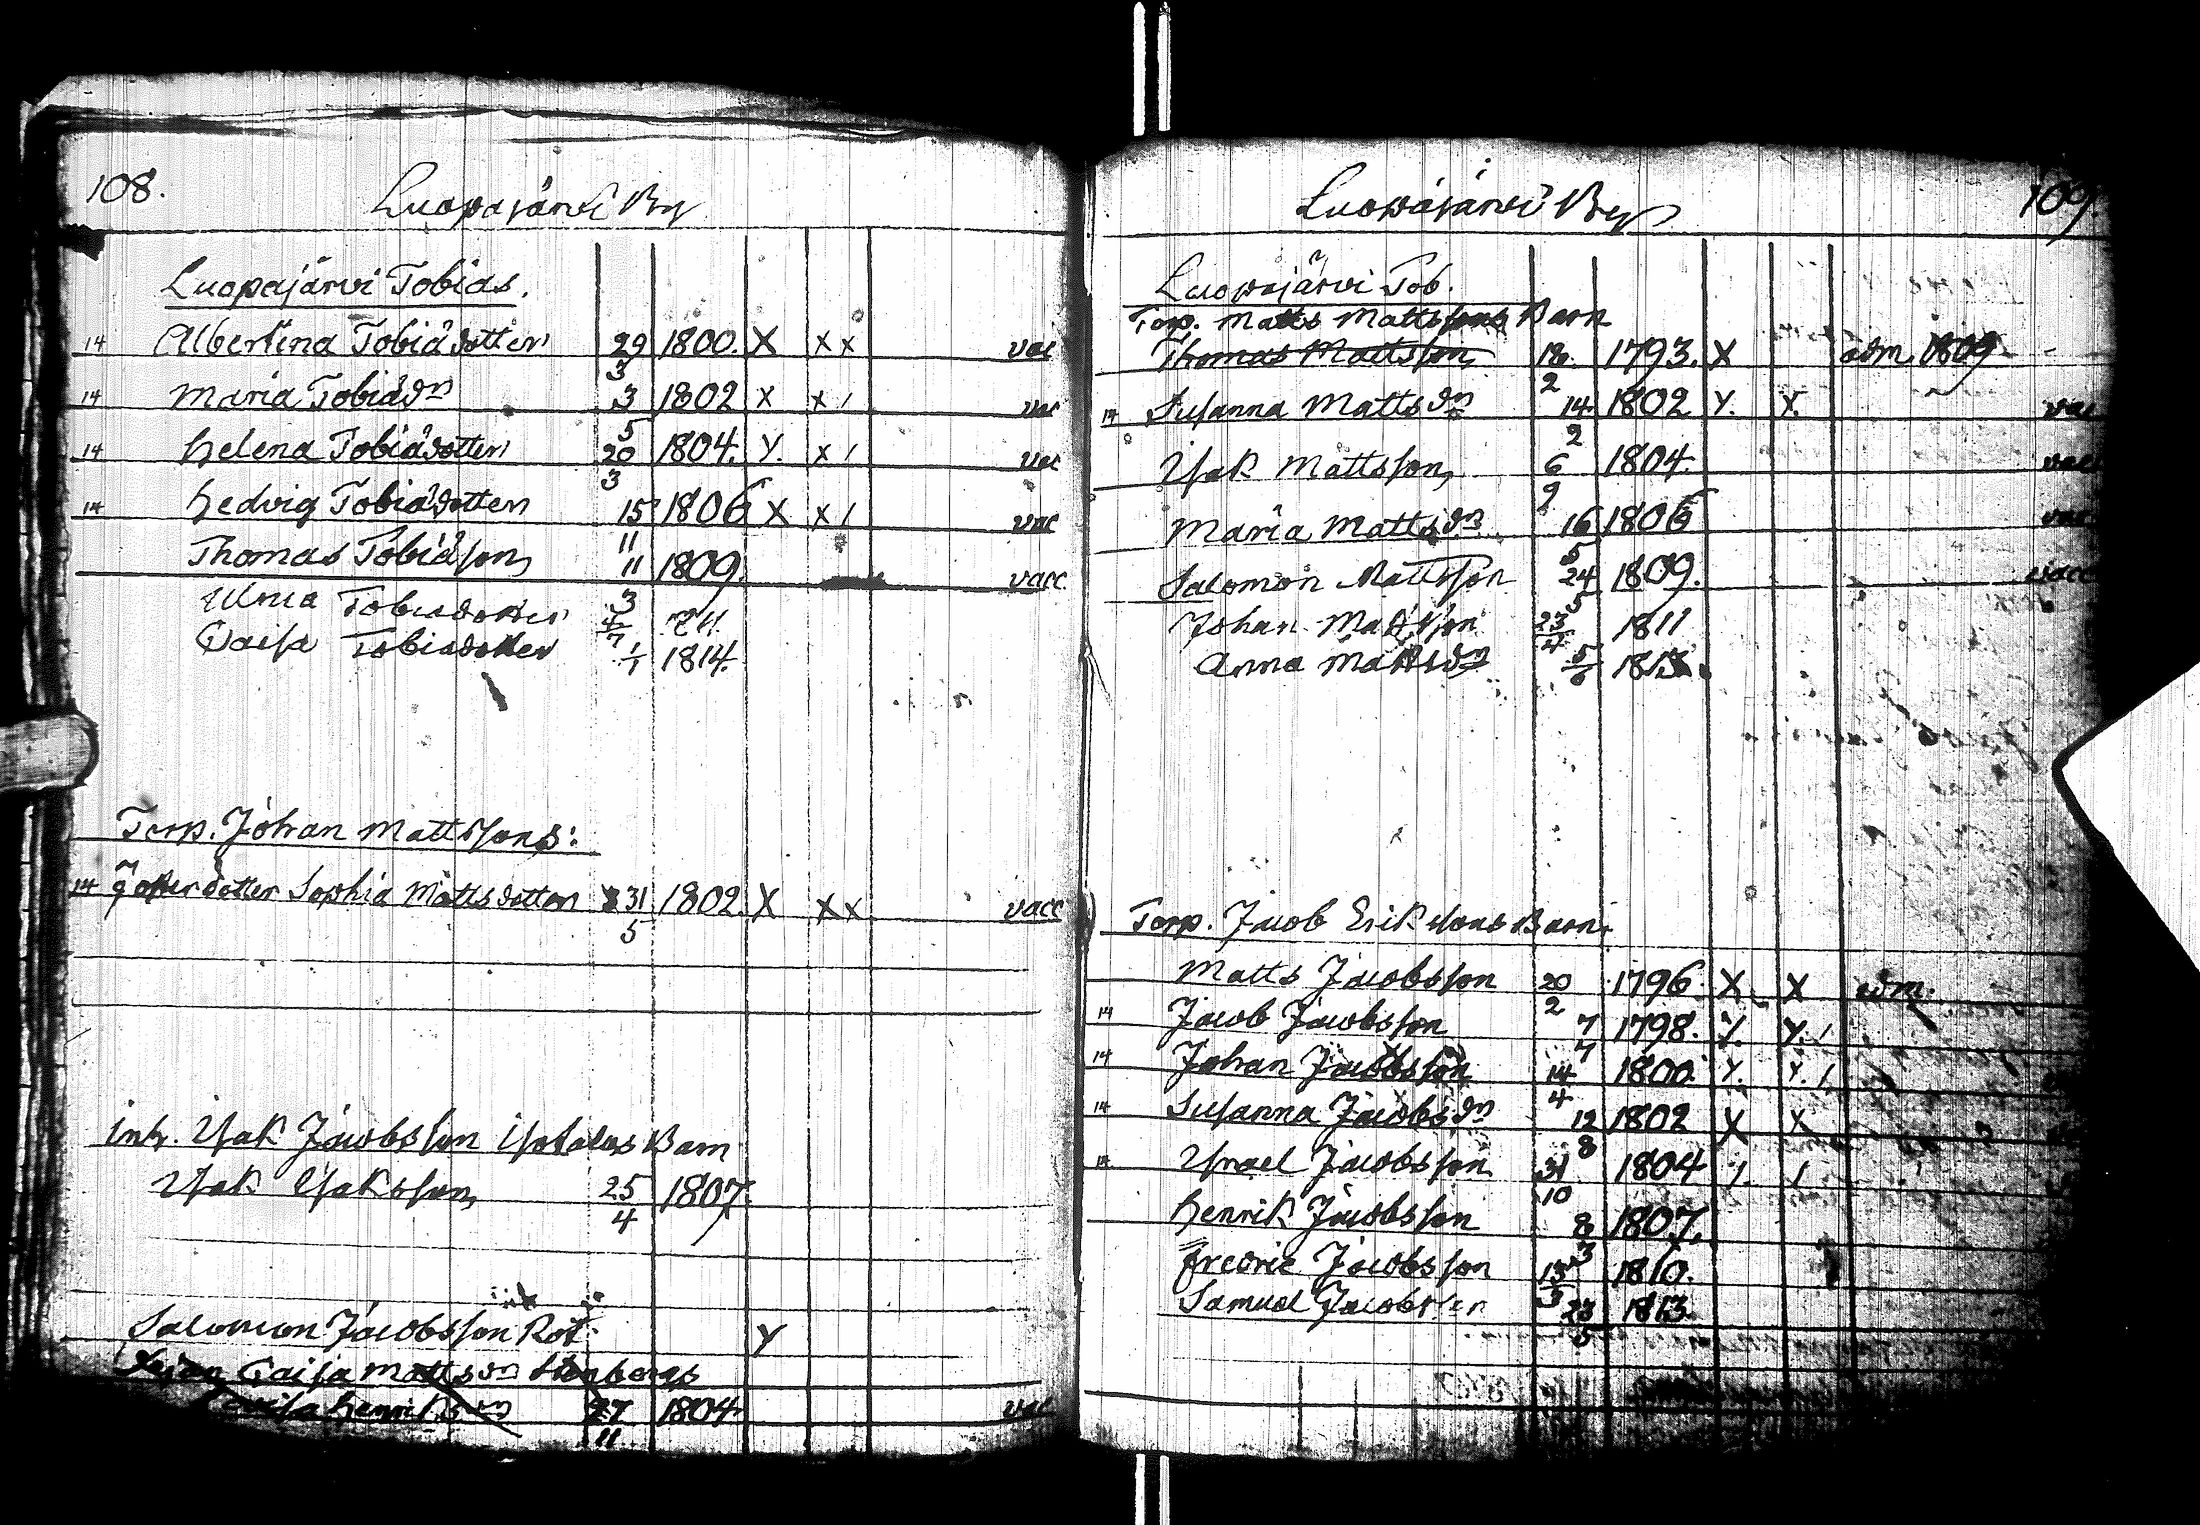 108.
Luopajärvi By
Luopajärvi Tobias.
14 Albertina Tobiædotter 29/3 1800. X XX vac
14 Maria Tobiædr 3/5 1802 X X / vac
14 Helena Tobiædotter 20/3 1804. Y. X / vac
14 Hedvig Tobiædotter 15/11 1806 X X / vac
Thomas Tobiæson 11/3 1809. vacc
Ulrica Tobiædotter 4/7
Caisa Tobiædotter 1/1 1814.
Torp. Johan Mattssons:
14 dotter Sophia Mattsdotter 31/5 1802. X XX vacc
Inh. Isak Jacobsson Barn
Isak Isaksson 25/4 1807.
Salomon Jacobsson Y
Caisa Mattsdr
Lovisa Henriksdr 27/11 1804. vac
109.
Luopajärvi By
Luopajärvi Tob.
Torp. Matts Mattssons Barn
Thomas Mattsson 18/2 1793. X adm. 1809
14 Susanna Mattsdr 14/2 1802 Y. X. vac
Isak Mattsson 6/9 1804. vac
Maria Mattsdr 16/5 1806 vac
Salomon Mattsson 24/5 1809. vacc
Johan Mattsson 23/4 1811
Anna Mattsdr 5/6 1813.
Torp. Jacob Erikssons Barn:
Matts Jacobsson 20/2 1796. X X adm.
14 Jacob Jacobsson 7/7 1798. Y. Y. /
14 Johan Jacobsson 14/4 1800. Y. Y. /
14 Susanna Jacobsdr 12/8 1802 X X
14 Israel Jacobsson 31/10 1804 /. /
Henrik Jacobsson 8/3 1807.
Fredric Jacobsson 13/3 1810.
Samuel Jacobsson 23/5 1813.